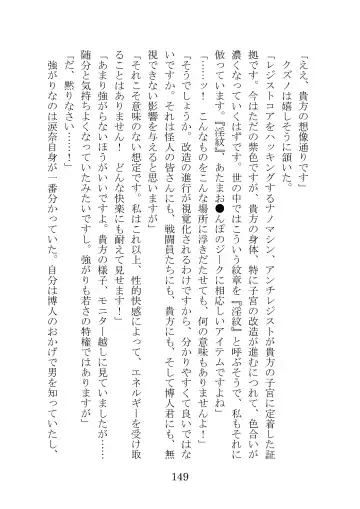 「ええ、貴方の想像通りです」
クズノは嬉しそうに頷いた。
「レジストコアをハッキングするナノマシン、アンチレジストが貴方の子宮に定着した証
拠です。今はただの紫色ですが、貴方の身体、特に子宮の改造が進むにつれて、色合いが
濃くなっていくはずです。世の中ではこういう紋章を『淫紋』と呼ぶそうで、私もそれに
倣っています。『淫紋』あたまお●んぽのジークに相応しいアイテムですよね」
「……ッ！　こんなものをこんな場所に浮きだたせても、何の意味もありませんよ！」
「そうでしょうか。改造の進行が視覚化されるわけですから、分かりやすくて良いではな
いですか。それは怪人の皆さんにも、戦闘員たちにも、貴方にも、そして博人君にも、無
視できない影響を与えると思いますが」
「それこそ意味のない想定です。私はこれ以上、性的快感によって、エネルギーを受け取
ることはありません！　どんな快楽にも耐えて見せます！」
「あまり強がらないほうがいいですよ。貴方の様子、モニター越しに見ていましたが……
随分と気持ちよくなっていたみたいですし。強がりも若さの特権ではありますが」
「だ、黙りなさい……！」
強がりなのは涙奈自身が一番分かっていた。自分は博人のおかげで男を知っていたし、
149